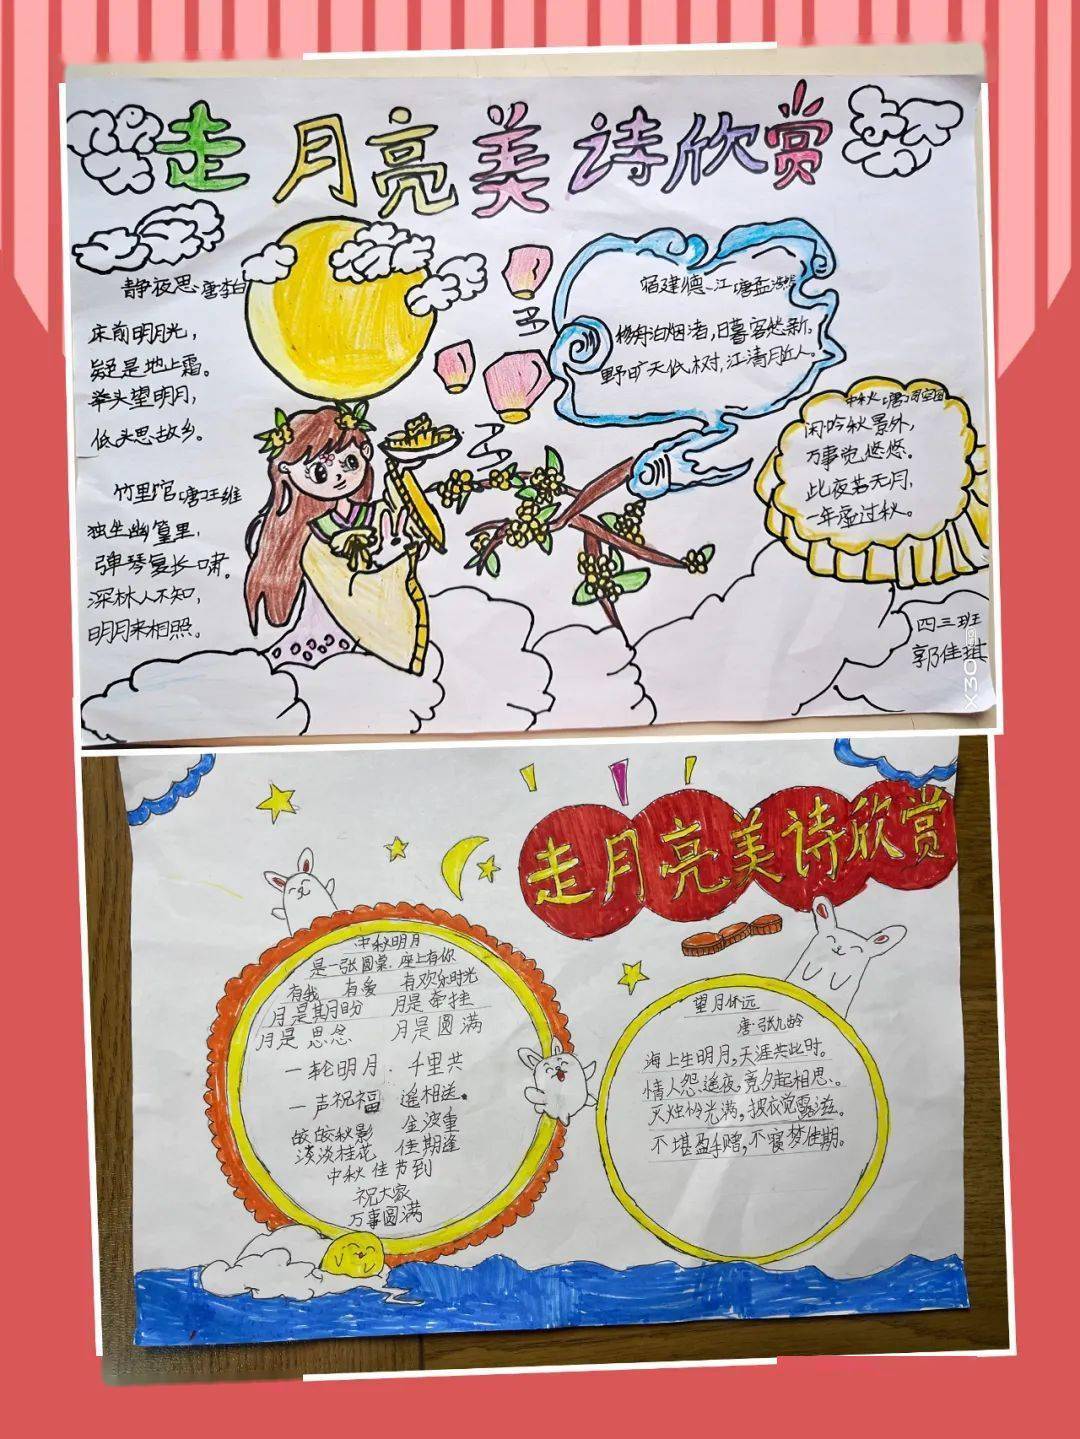 走月亮美诗欣赏
静夜思 唐李白
床前明月光，
疑是地上霜。
举头望明月，
低头思故乡。
竹里馆 唐王维
独坐幽篁里，
弹琴复长啸。
深林人不知，
明月来相照。
宿建德江 唐孟浩然
移舟泊烟渚，日暮客愁新。
野旷天低树，江清月近人。
中秋 唐司空图
闲吟秋景外，
万事觉悠悠。
此夜若无月，
一年虚过秋。
四三班
郭佳琪
X30
走月亮美诗欣赏
中秋明月
是一张圆桌 座上有你
有我 有爱 有欢乐时光
月是期盼 月是牵挂
月是思念 月是圆满
一轮明月．千里共
一声祝福 遥相送．
皎皎秋影 金波重
淡淡桂花 佳期逢
中秋佳节到
祝大家
万事圆满
望月怀远
唐·张九龄
海上生明月，天涯共此时。
情人怨遥夜，竟夕起相思。
灭烛怜光满，披衣觉露滋。
不堪盈手赠，不寝梦佳期。